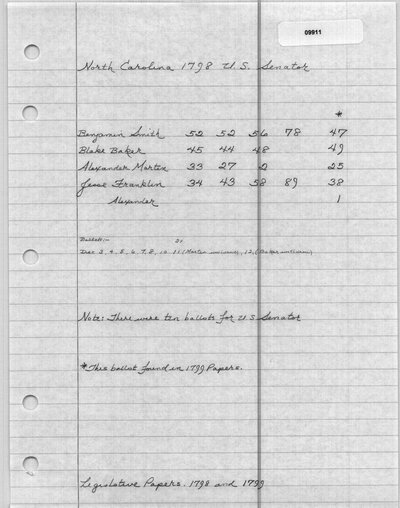 09911
North Carolina 1798 U.S. Senator
*
Benjamin Smith 52 52 56 78 47
Blake Baker 45 44 48 49
Alexander Martin 33 27 2 25
Jesse Franklin 34 43 58 89 38
Alexander 1
Ballots:-
Dec 3, 4, 5, 6, 7, 8, 10 11 (Martin withdrawn), 12, (Baker withdrawn)
Note: There were ten ballots for U S Senator
*This ballot found in 1799 Papers.
Legislative Papers. 1798 and 1799